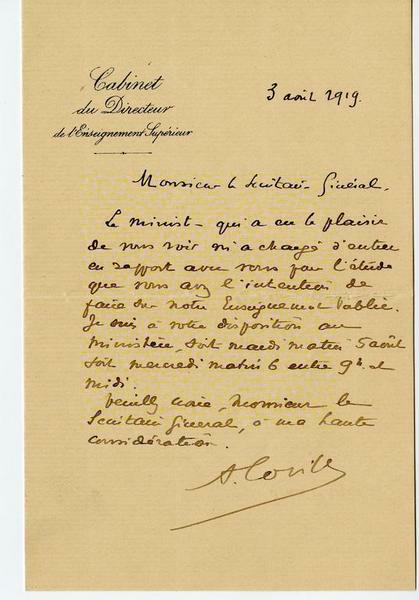 Cabinet
du Directeur
de l'Enseignement Supérieur
3 août 1919.
Monsieur le Secrétaire Général.
Le ministre qui a eu le plaisir
de vous voir m'a chargé d'entrer
en rapport avec vous pour l'étude
que vous avez l'intention de
faire sur notre Enseignement Public.
Je suis à votre disposition au
ministère, soit mardi matin 5 août
soit mercredi matin 6 entre 9h. et
midi.
Veuillez croire, Monsieur le
Secrétaire Général, à ma haute
considération.
A. Coville